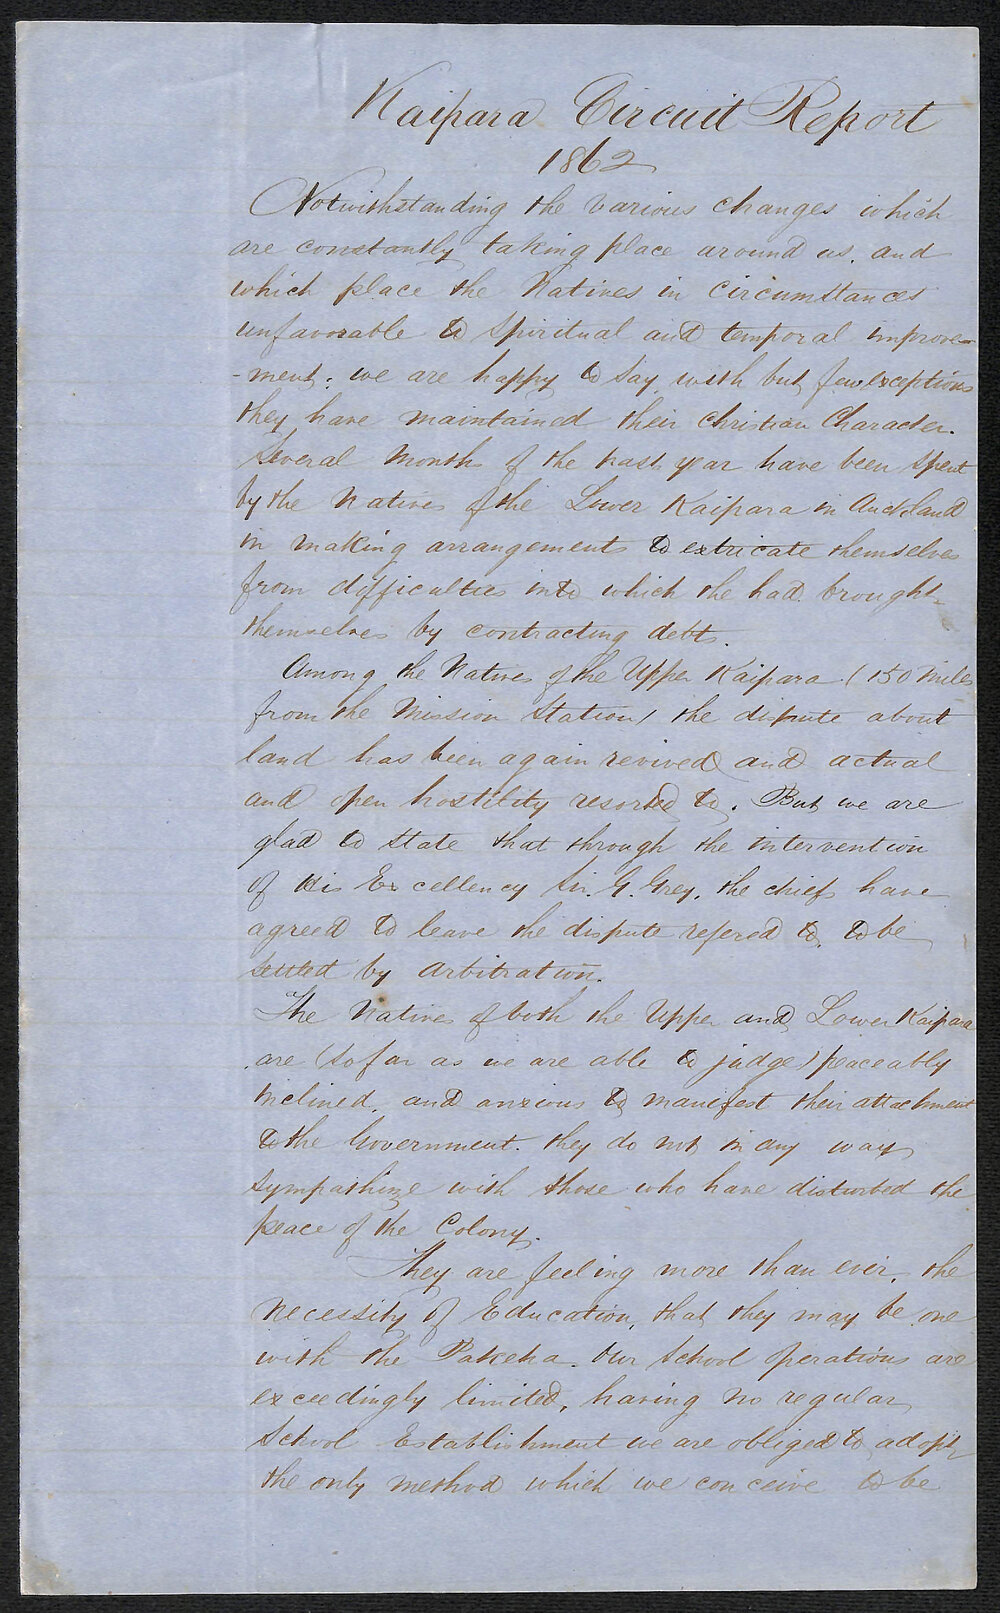 Kaipara Circuit Report
1862
Notwithstanding the various changes which
are constantly taking place around us, and
which place the Natives in circumstances
unfavorable to spiritual and temporal improve-
-ment; we are happy to say, with but few exceptions
they have maintained their christian Character.
Several Months of the past year have been spent
by the Natives of the Lower Kaipara in Auckland
in making arrangements to extricate themselves
from difficulties into which the had brought
themselves by contracting debts.
Among the Natives of the Upper Kaipara (150 miles
from the Mission Station) the dispute about
land has been again revived and actual
and open hostility resorted to. But we are
glad to state that through the intervention
of His Excellency Sir. G. Grey, the chiefs have
agreed to leave the dispute refered to, to be
settled by arbitration.
The Natives of both the Upper and Lower Kaipara
are (so far as we are able to judge) peaceably
inclined, and anxious to manifest their attachment
to the Government. they do not in any way
sympathize with those who have disturbed the
peace of the Colony.
They are feeling more than ever, the
necessity of Education, that they may be one
with the Pakeha. Our School operations are
exceedingly limited, having no regular
School Establishment we are obliged to adopt
the only method which we conceive to be